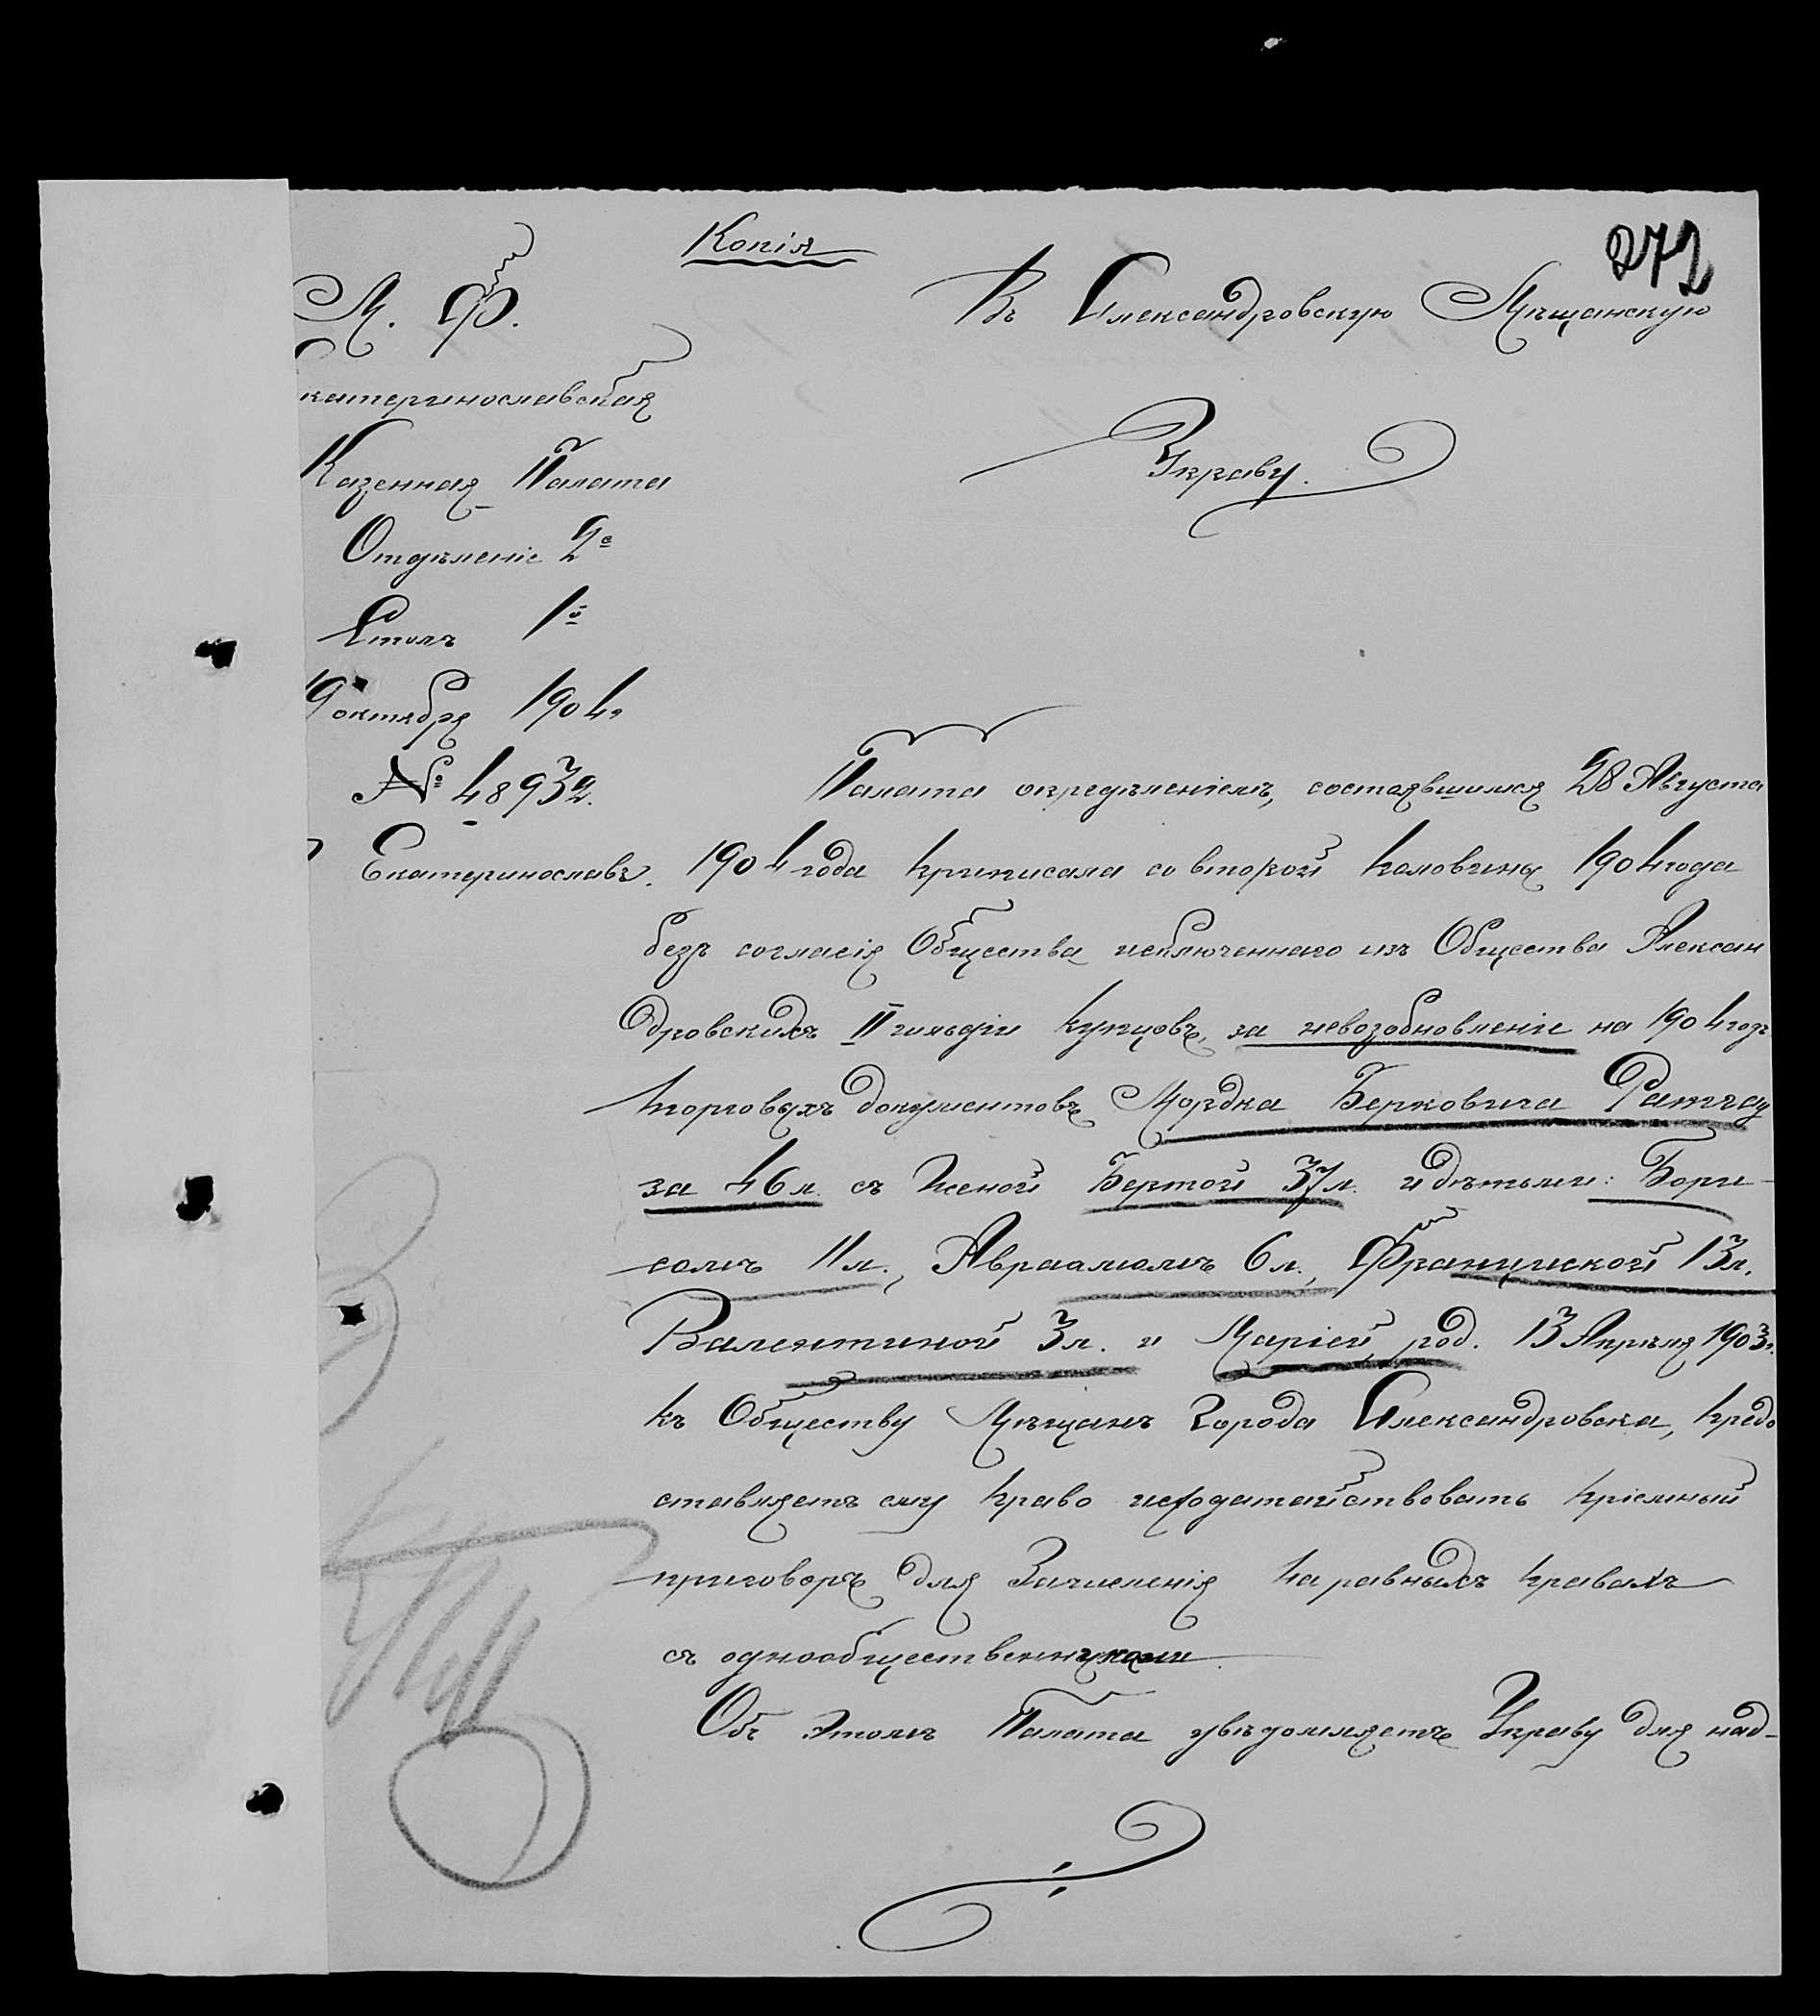 Копія
272
М. Ф.
Екатеринославская
Казенная Палата
Отдѣленіе 2е
Столъ 1й
19 октября 1904 г.
№ 48932.
Екатеринославъ.
Въ Александровскую Мѣщанскую
Управу.
Палата опредѣленіемъ, состоявшимся 28 Августа
1904 года приписала со второй половины 1904 года
безъ согласія Общества исключеннаго изъ Общества Алексан
дровскихъ II гильдіи купцовъ, за невозобновленіе на 1904 годъ
торговыхъ документовъ Мордка Берковича
за 46 л. съ женой Бертой 37 л. и дѣтьми: Бори-
сомъ 11 л., Авраамомъ 6 л., Франциской 13 л.
Валентиной 3 л. и Маріей, род. 13 Апрѣля 1903 г.
къ Обществу Мѣщанъ Города Александровска, предо
ставляетъ ему право исходатайствовать пріемный
приговоръ для Зачисленія на равныхъ правахъ
съ однообщественниками.
Объ этомъ Палата увѣдомляетъ Управу для над-